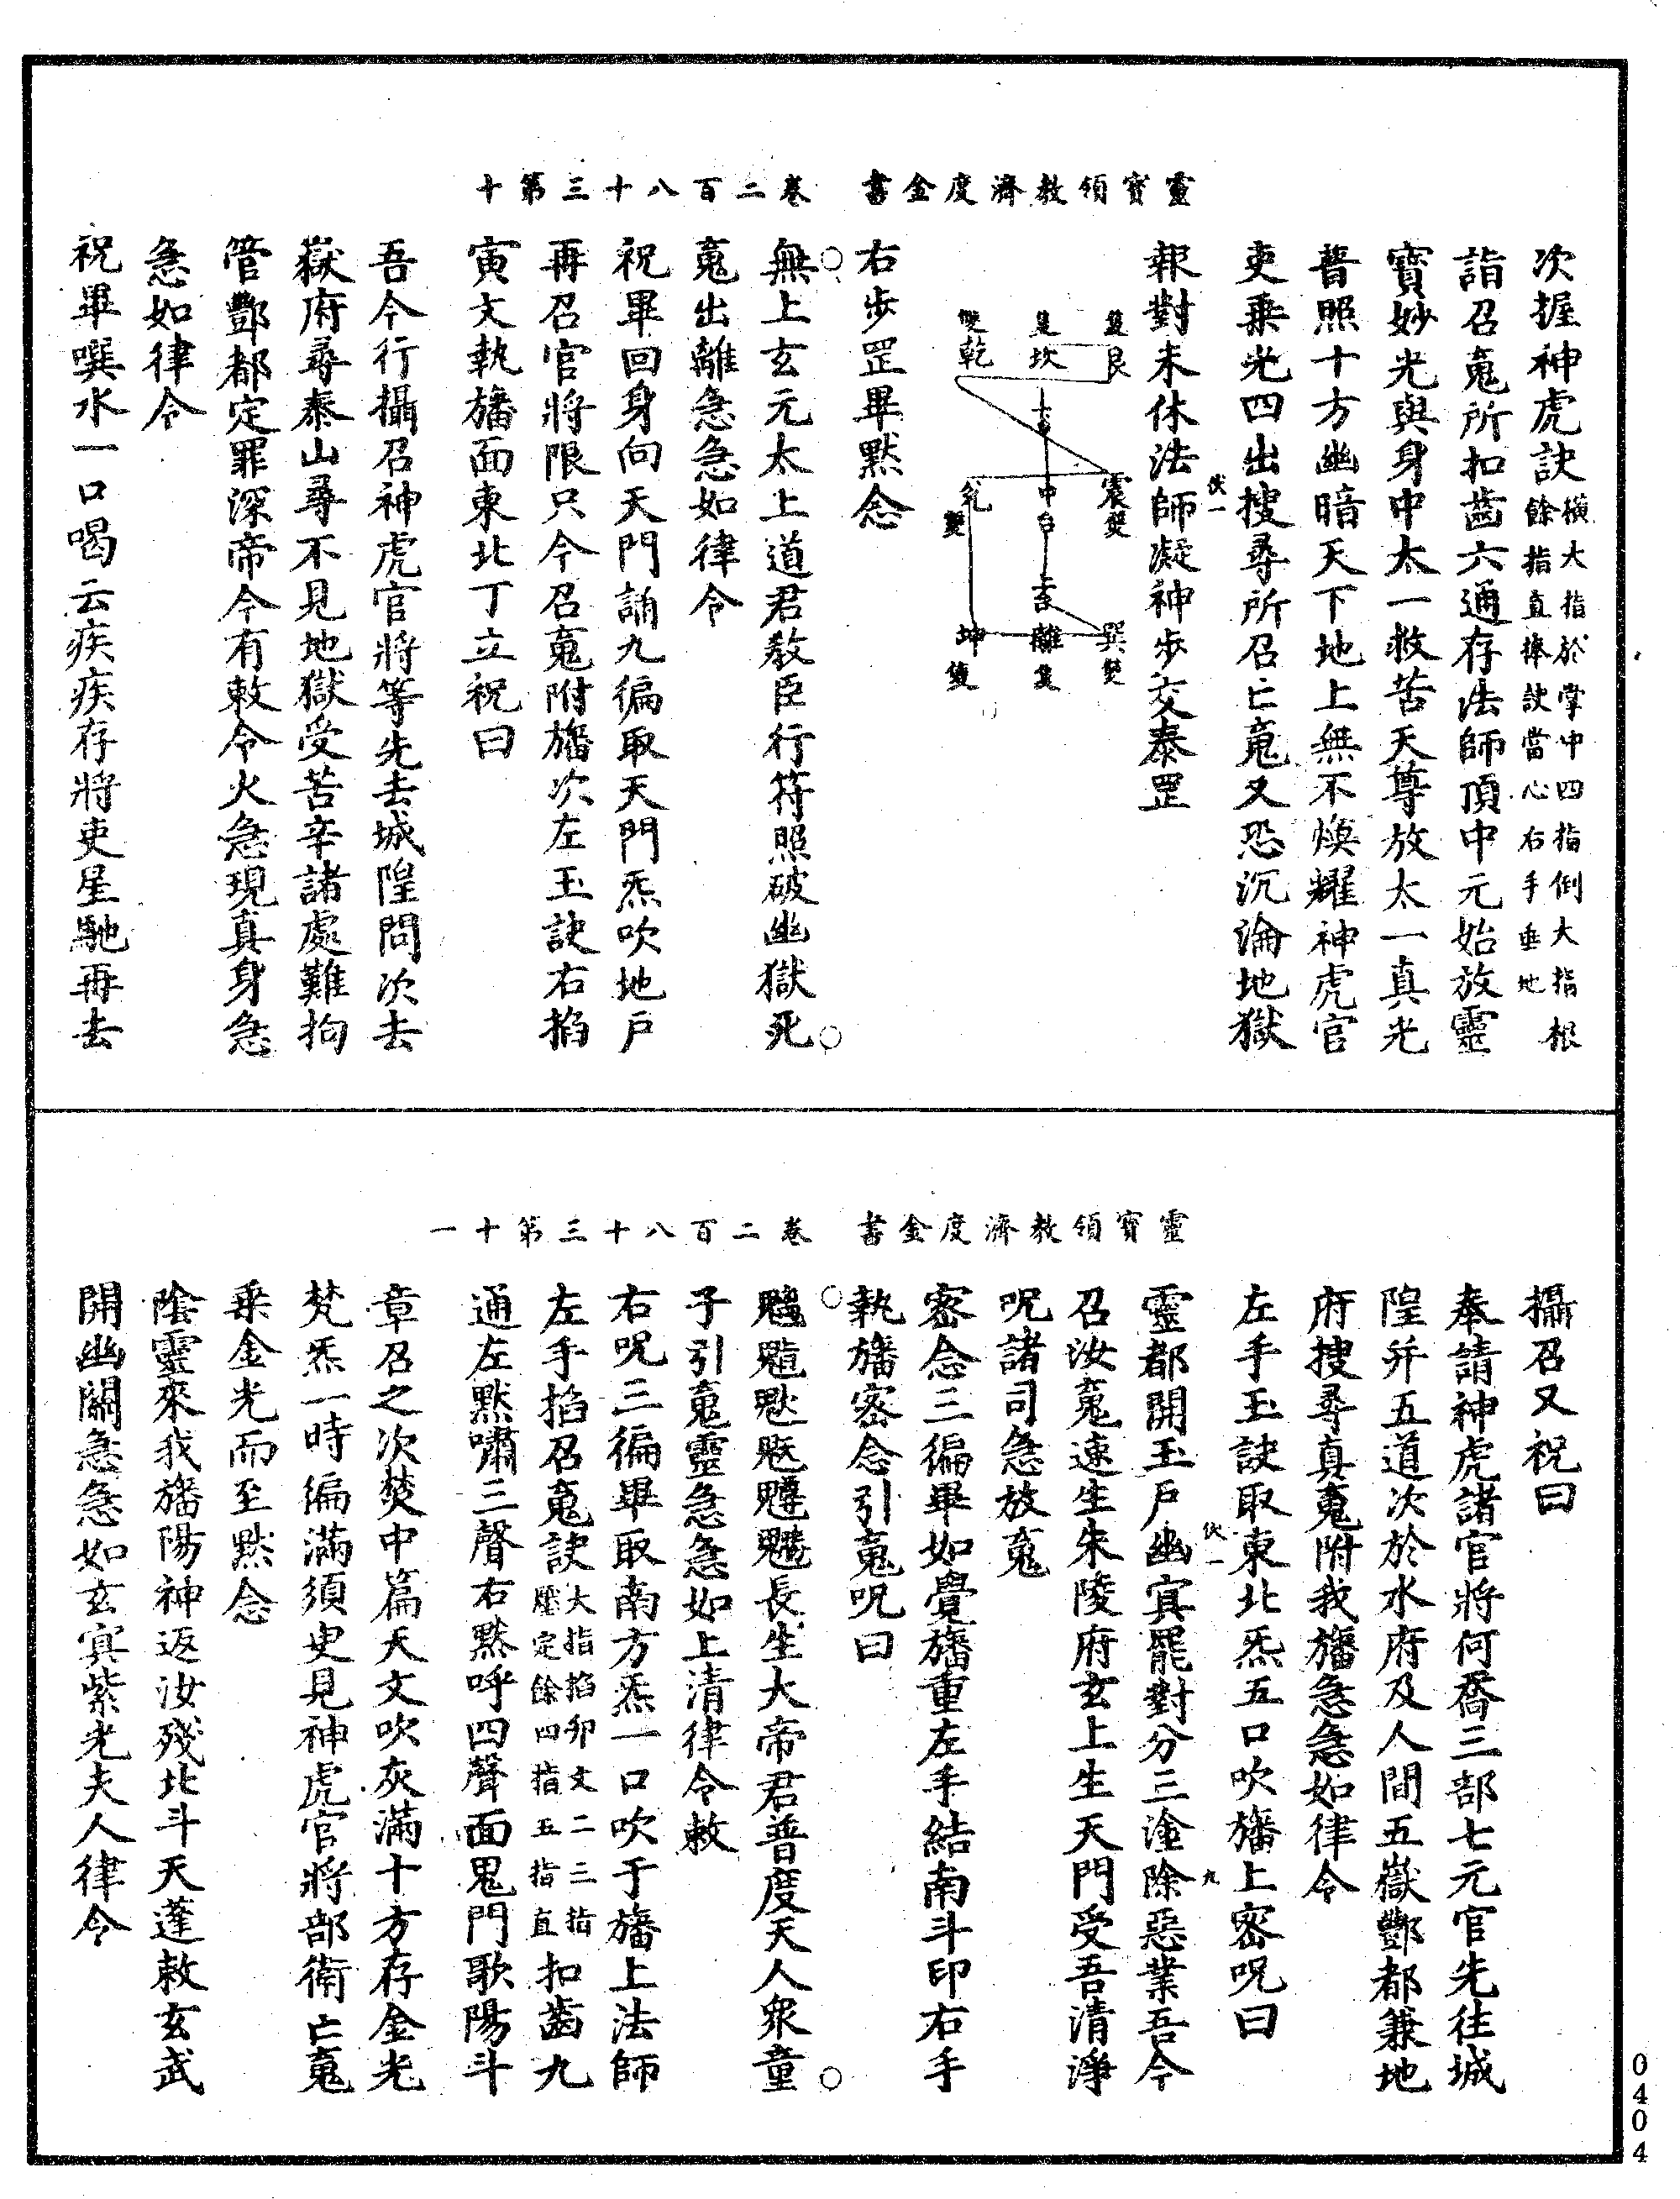 靈寶領教濟度金書　卷二百八十三第十
次握神虎訣橫大指於掌中四指倒大指根
餘指直捧訣當心右手垂地
詣召䰟所扣齒六通存法師頂中元始放靈
寶妙光與身中太一救苦天尊放太一真光
普照十方幽暗天下地上無不煥耀神虎官
吏乗光四出搜尋所召亡䰟又恐沉淪地獄
伏一
報對未休法師凝神步交泰罡
隻艮　隻坎　雙乾
震雙　中台　兌雙
巽雙　離隻　坤雙
右步罡畢黙念
無上玄元太上道君敎臣行符照破幽獄死
䰟出離急急如律令
祝畢回身向天門誦九徧取天門炁吹地戶
再召官將限只今召䰟附旛次左玉訣右掐
寅文執旛面東北丁立祝曰
吾今行攝召神虎官將等先去城隍問次去
嶽府尋泰山尋不見地獄受苦辛諸處難拘
管酆都定罪深帝今有敕令火急現真身急
急如律令
祝畢噀水一口喝云疾疾存將吏星馳再去
靈寶領教濟度金書　卷二百八十三第十一
攝召又祝曰
奉請神虎諸官將何喬三部七元官先往城
隍并五道次於水府及人間五嶽酆都兼地
府搜尋真䰟附我旛急急如律令
左手玉訣取東北炁五口吹旛上密呪曰
伏一　九
靈都開玉戶幽冥罷對分三塗除惡業吾今
召汝䰟速生朱陵府玄上生天門受吾清淨
呪諸司急放䰟
密念三徧畢如覺旛重左手結南斗印右手
執旛密念引䰟呪曰
長生大帝君普度天人衆童
子引䰟靈急急如上清律令敕
右呪三徧畢取南方炁一口吹于旛上法師
左手掐召䰟訣大指掐卯文二三指
壓定餘四指五指直扣齒九
通左黙嘯三聲右黙呼四聲面鬼門歌陽斗
章召之次焚中篇天文吹灰滿十方存金光
梵炁一時徧滿須臾見神虎官將部衛亡䰟
乗金光而至黙念
陰靈來我旛陽神返汝殘北斗天蓬敕玄武
開幽關急急如玄冥紫光夫人律令
0404